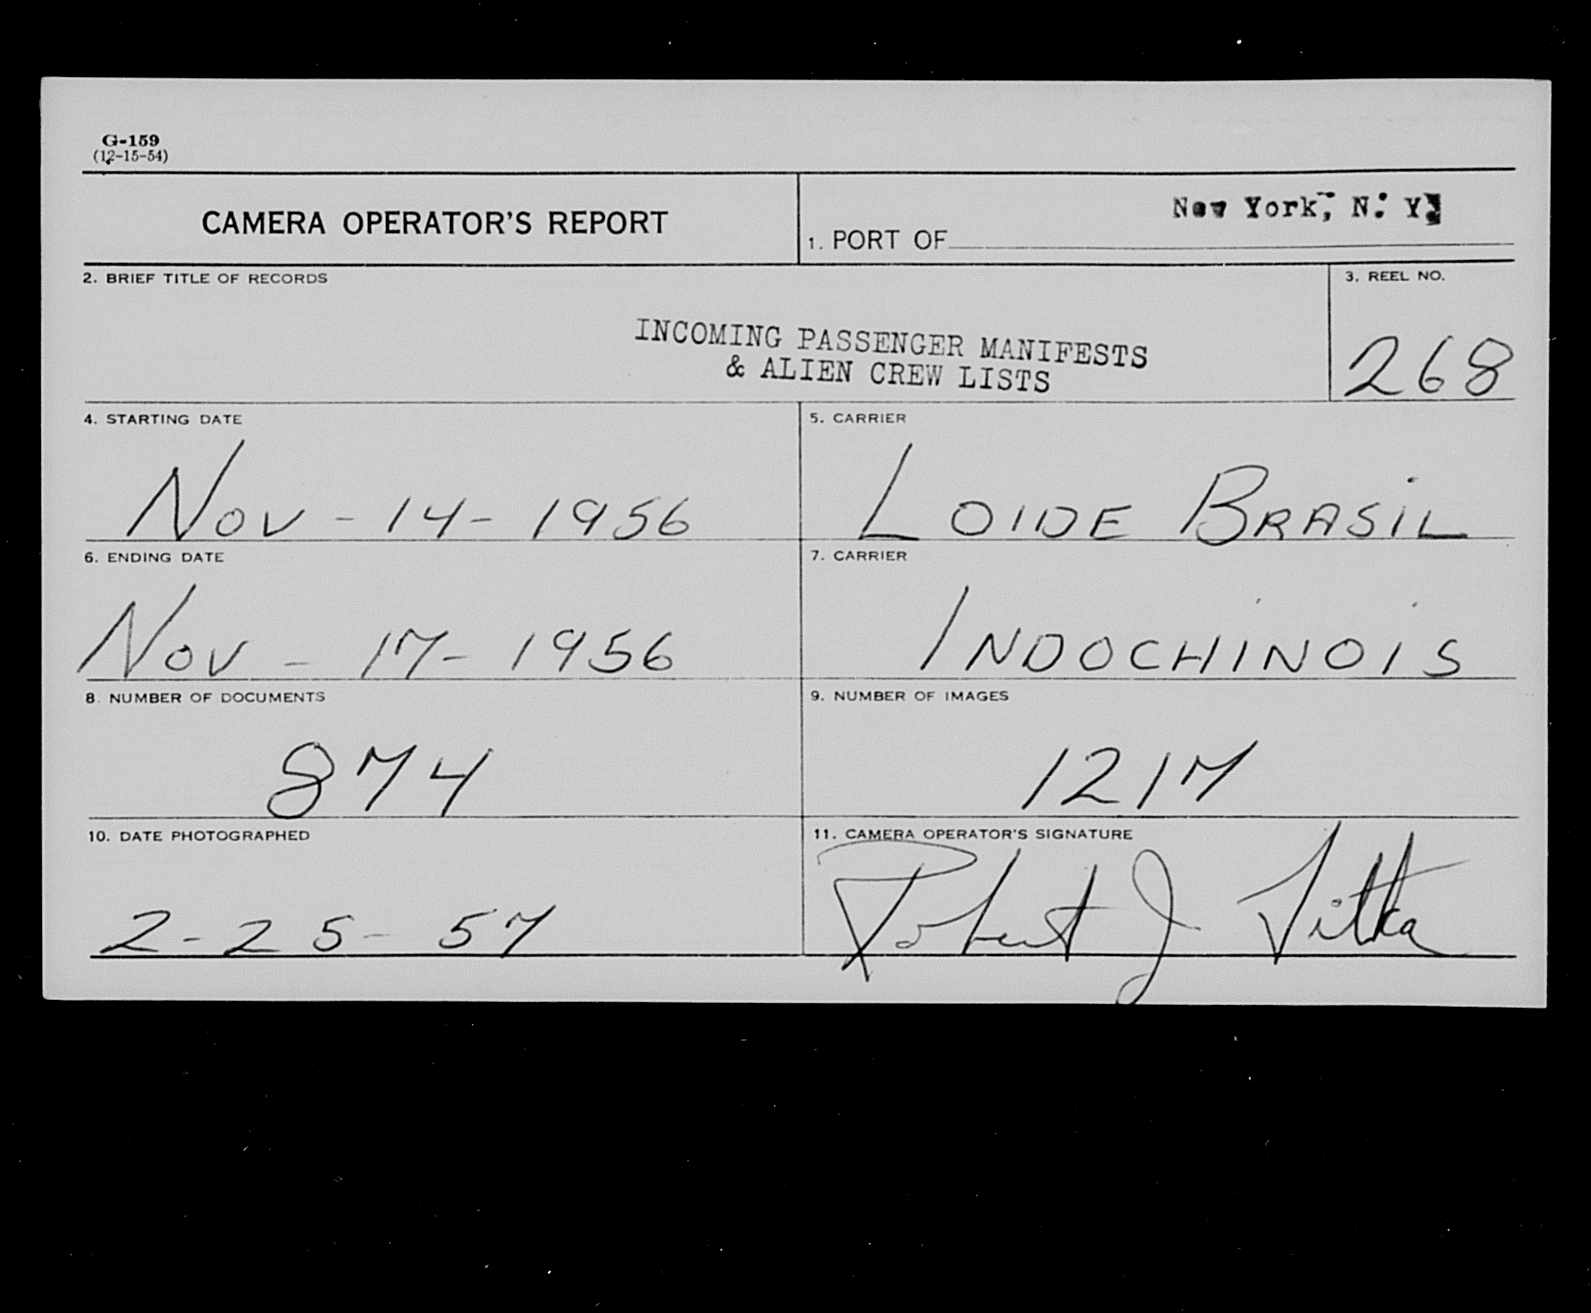 G-159
(12-15-54)
CAMERA OPERATOR'S REPORT
1. PORT OF New York, N. Y.
2. BRIEF TITLE OF RECORDS
INCOMING PASSENGER MANIFESTS
& ALIEN CREW LISTS
3. REEL NO.
268
4. STARTING DATE
Nov - 14 - 1956
5. CARRIER
LOIDE BRASIL
6. ENDING DATE
Nov - 17 - 1956
7. CARRIER
INDOCHINOIS
8. NUMBER OF DOCUMENTS
874
9. NUMBER OF IMAGES
1217
10. DATE PHOTOGRAPHED
2-25-57
11. CAMERA OPERATOR'S SIGNATURE
Robert J